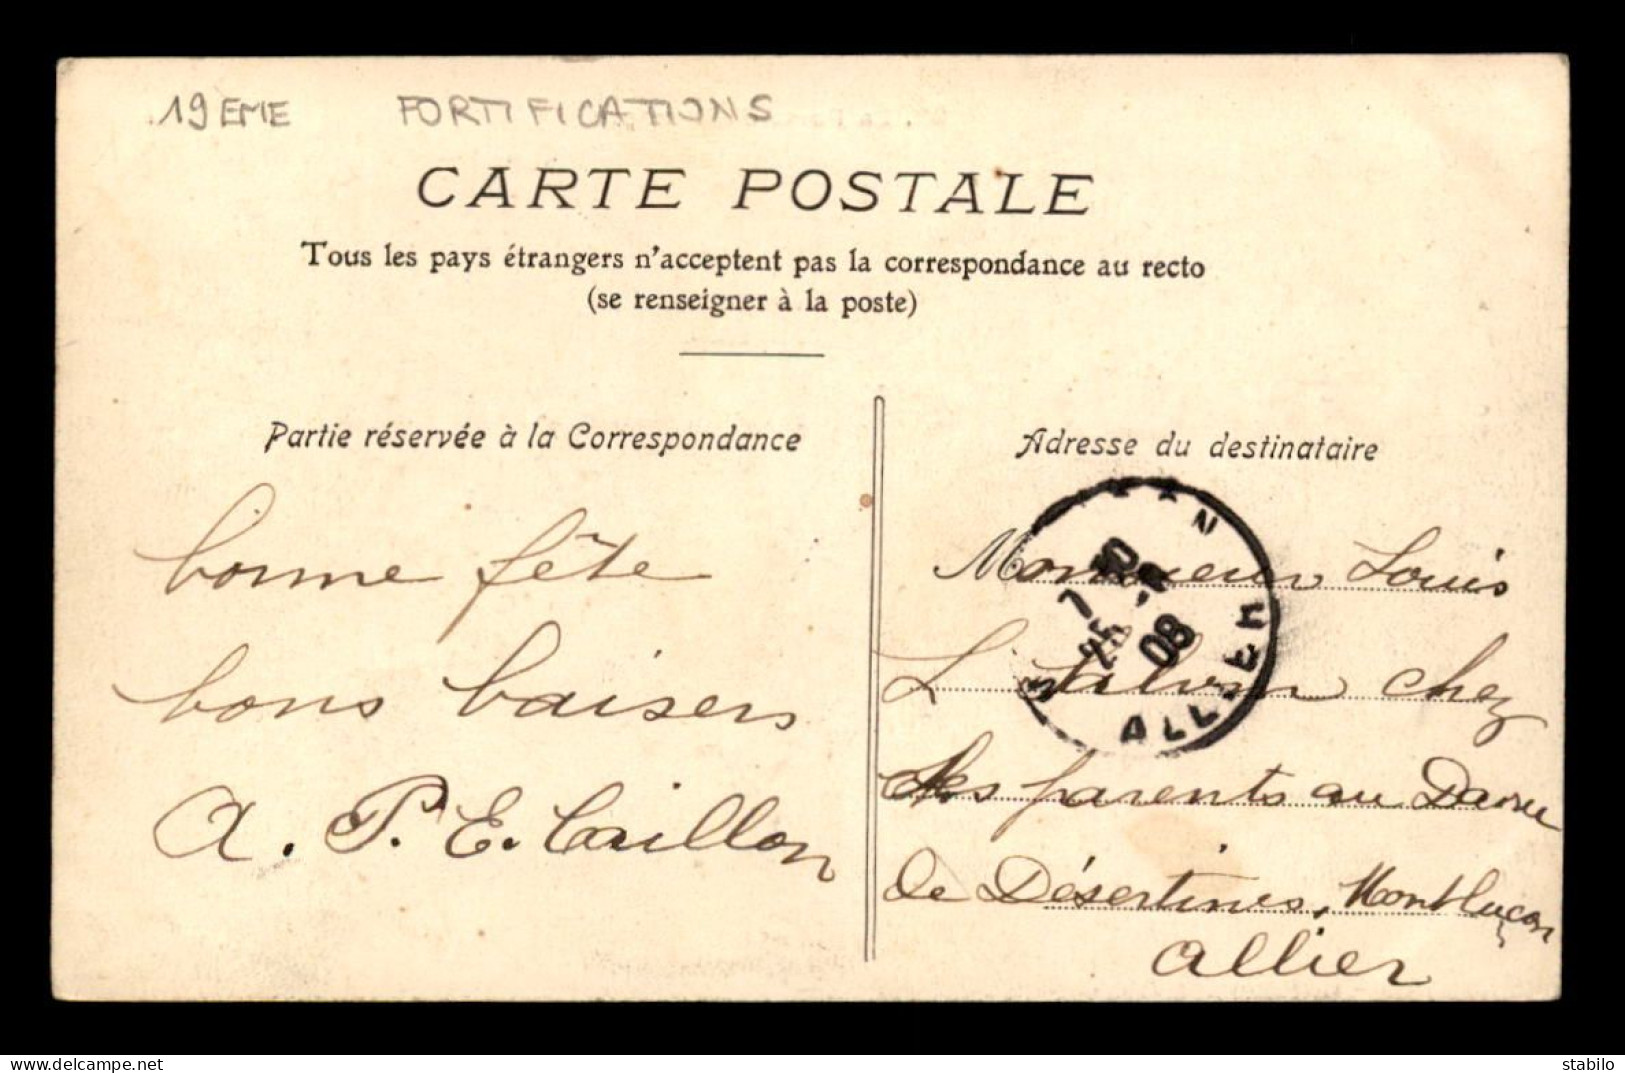 19EME FORTIFICATIONS
CARTE POSTALE
Tous les pays étrangers n'acceptent pas la correspondance au recto
(se renseigner à la poste)
Partie réservée à la Correspondance
bonne fête
bons baisers
A. P. E. Caillon
Adresse du destinataire
Monsieur Louis
chez
ses parents au
de Désertines, Montluçon
Allier
7 30
25 -8
08
ALLIER
www.delcampe.net
stabilo